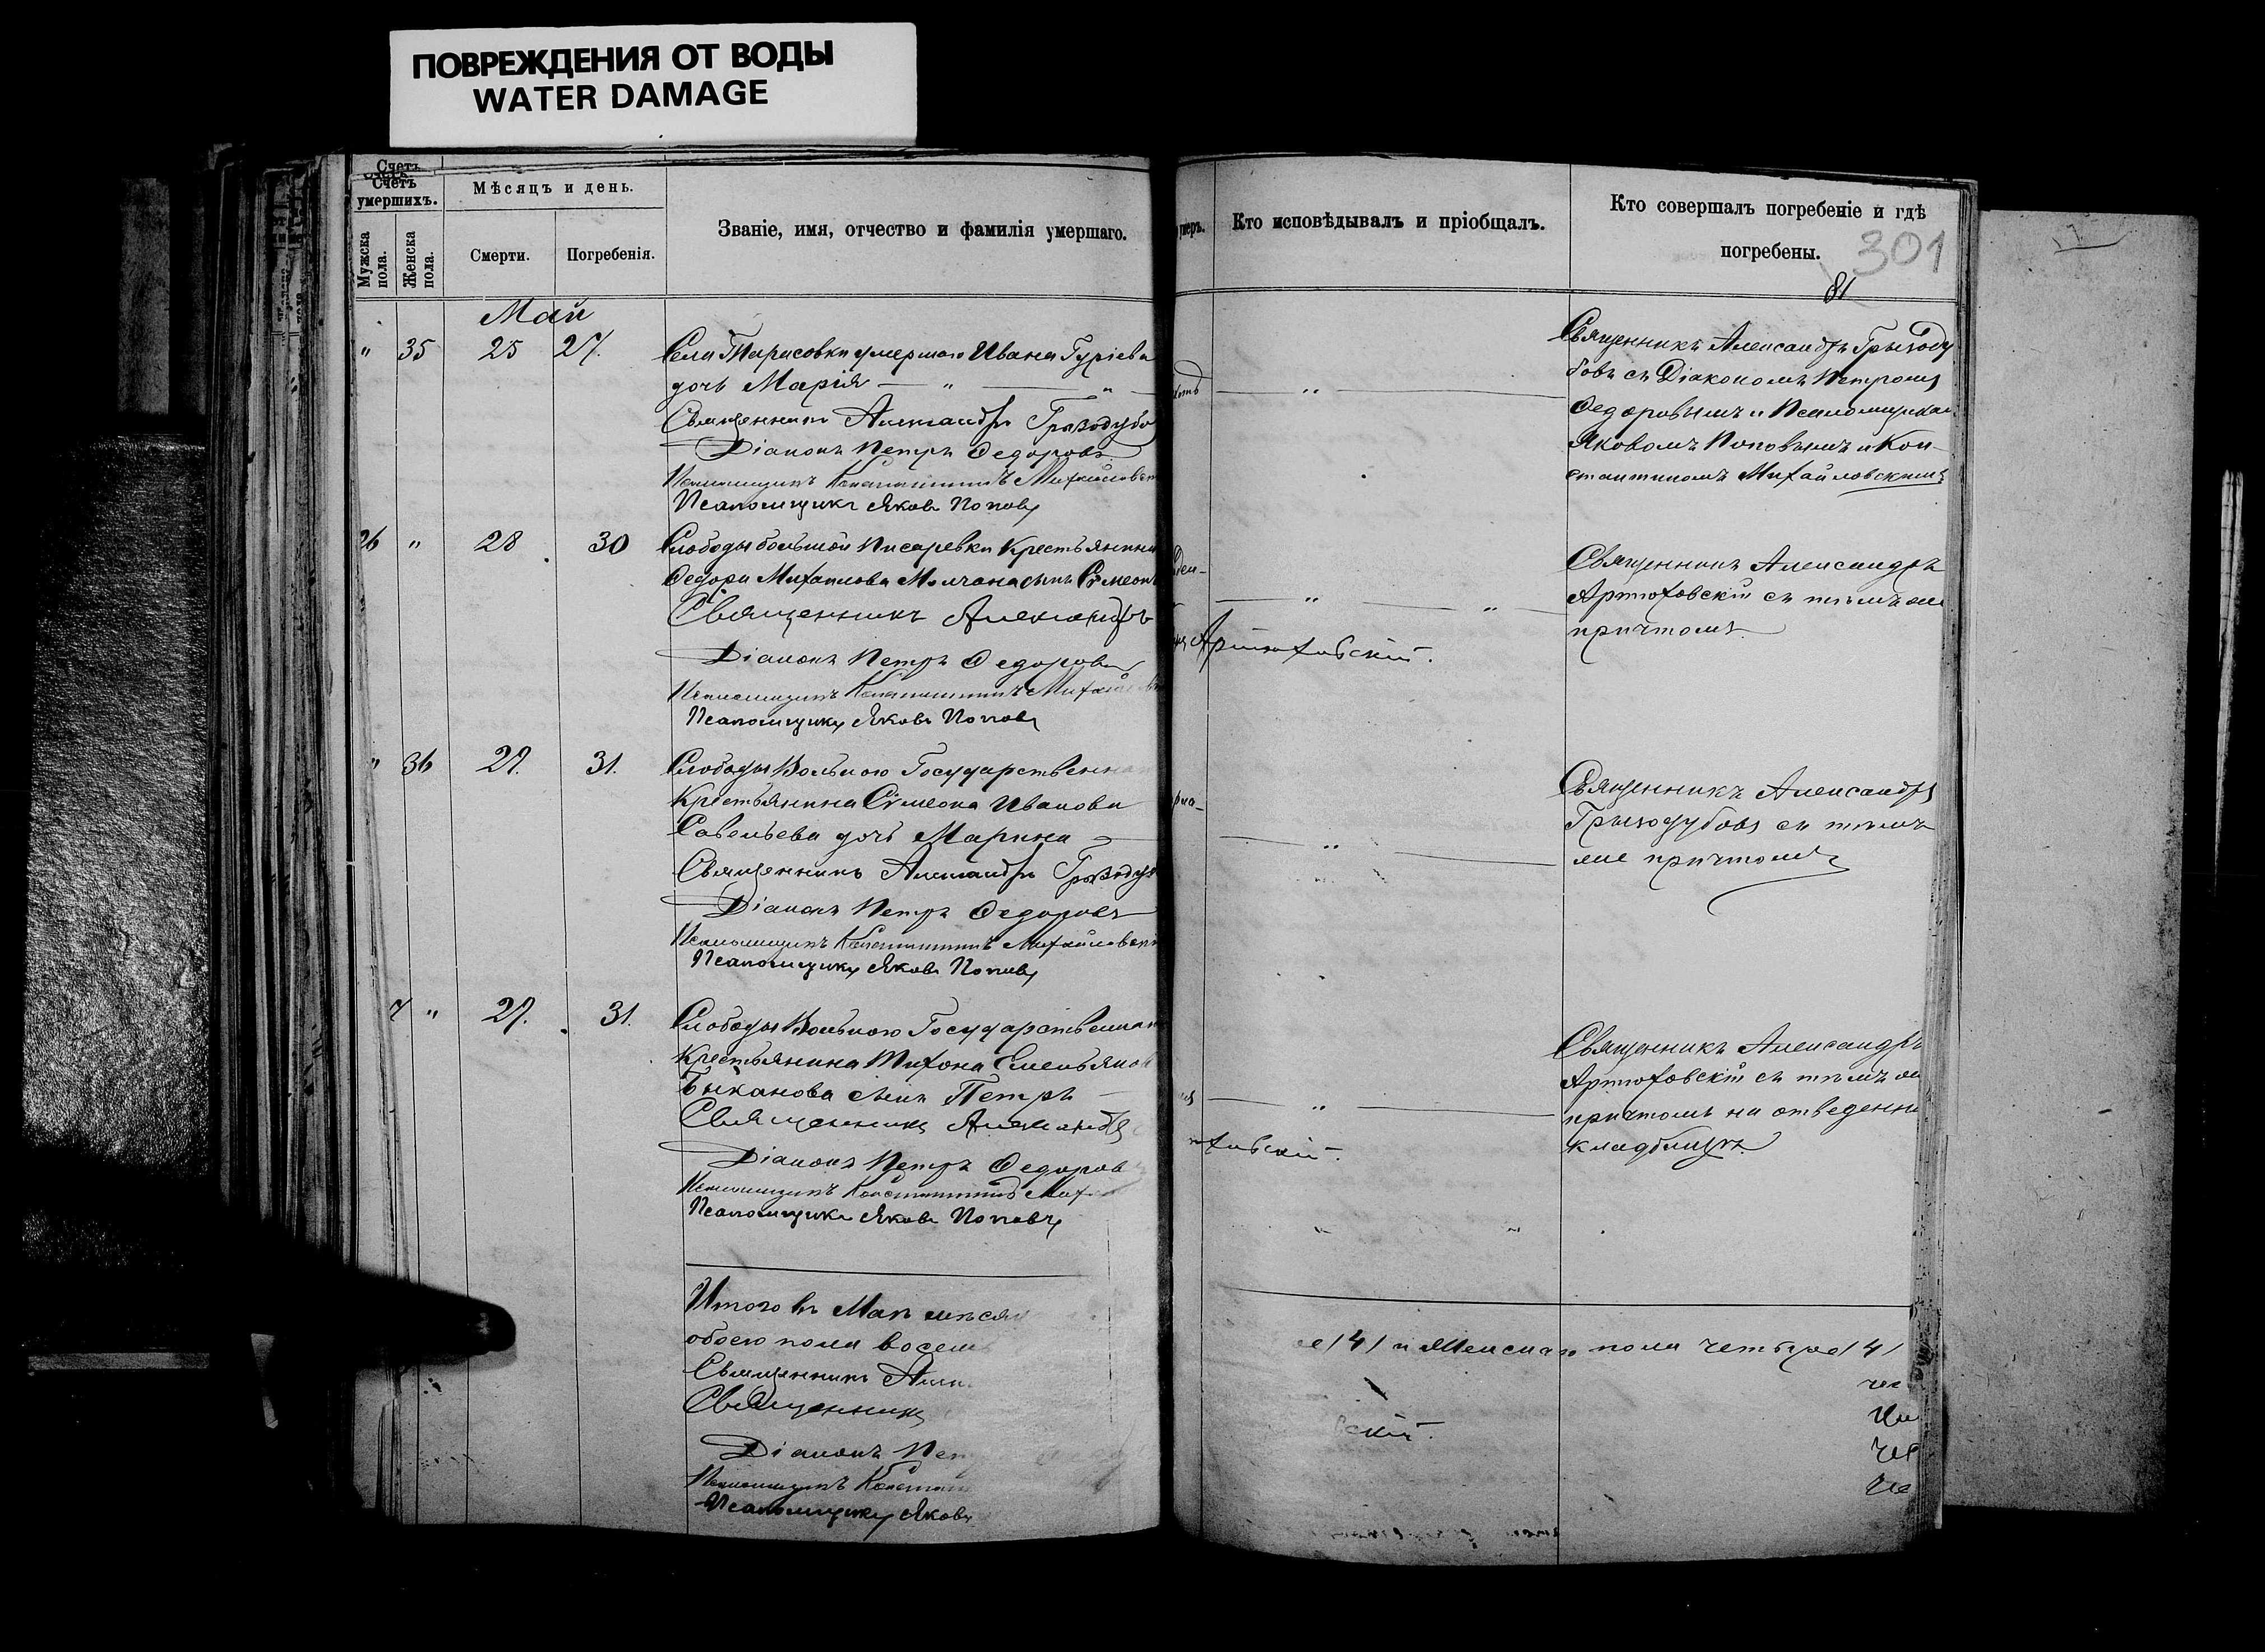 ПОВРЕЖДЕНИЯ ОТ ВОДЫ
WATER DAMAGE
Счетъ
Счетъ умершихъ.
Мужска пола.
Женска пола.
Мѣсяцъ и день.
Смерти.
Погребенія.
Званіе, имя, отчество и фамилія умершаго.
умеръ.
Кто исповѣдывалъ и пріобщалъ.
Кто совершалъ погребеніе и гдѣ
погребены.
301
81
Май
" 35 25 27.
Села Тарасовки умершаго Ивана Гуріева
дочь Марія — " — "
Священникъ Александръ Грызодубо
Діаконъ Петръ Федоровъ
Псаломщикъ Константинъ Михайловск
Псаломщикъ Яковъ Поповъ
Священникъ Александръ Грызоду
бовъ съ Діакономъ Петромъ
Федоровымъ и Псаломщикам
Яковомъ Поповымъ и Кон-
стантиномъ Михайловскимъ
26 " 28 30
Слободы большой Писаревки Крестьянина
Федора Михаилова Молчана сынъ Сѵмеонъ
Священникъ Александръ Артюховскій.
Діаконъ Петръ Федоровъ
Псаломщикъ Константинъ Михайловск
Псаломщикъ Яковъ Поповъ
Священникъ Александръ
Артюховскій съ тѣмъ же
причтомъ.
" 36 29. 31.
Слободы Вольною Государственна
Крестьянина Сѵмеона Иванова
Савельева дочь Марина
Священникъ Александръ Грызодуб
Діаконъ Петръ Федоровъ
Псаломщикъ Константинъ Михайловскі
Псаломщикъ Яковъ Поповъ
Священникъ Александръ
Грызодубовъ съ тѣмъ
же причтомъ
7 " 29. 31.
Слободы Вольною Государственна
Крестьянина Тихона Емельянов
Быканова сынъ Петръ
Священникъ Александръ
ховскій.
Діаконъ Петръ Федоровъ
Псаломщикъ Константинъ Мих
Псаломщикъ Яковъ Поповъ
Священникъ Александръ
Артюховскій съ тѣмъ же
причтомъ на отведенн
кладбищѣ.
Итого въ Маѣ мѣсяц
обоего пола восем
е /4/ и Женскаго пола четыре /4/
Священникъ Алек
Священникъ
вскій.
Діаконъ Пет
Псаломщикъ Констан
Псаломщикъ Яковъ